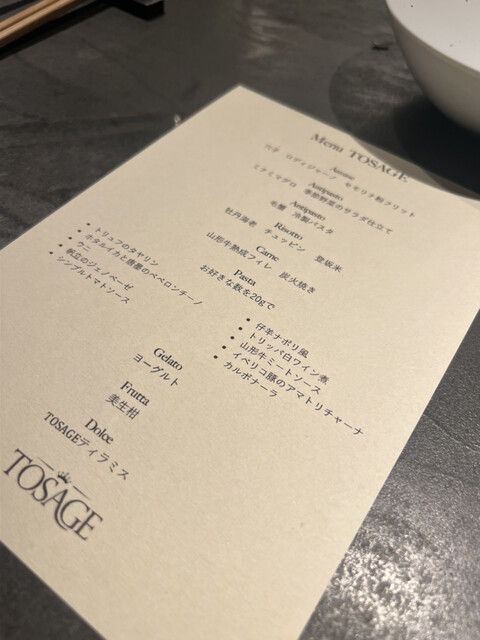 Menu TOSAGE
Amuse
穴子 ロディジャーノ セモリナ粉フリット
Antipasto
ミナミマグロ 季節野菜のサラダ仕立て
Antipasto
毛蟹 冷製パスタ
Risotto
牡丹海老 チュッピン 登坂米
Carne
山形牛熟成フィレ 炭火焼き
Pasta
お好きな数を20gで
• トリュフのタヤリン
• ホタルイカと唐墨のペペロンチーノ
• ウニ
• 帆立のジェノベーゼ
• シンプルトマトソース
• 仔羊ナポリ風
• トリッパ白ワイン煮
• 山形牛ミートソース
• イベリコ豚のアマトリチャーナ
• カルボナーラ
Gelato
ヨーグルト
Frutta
美生柑
Dolce
TOSAGEティラミス
TOSAGE